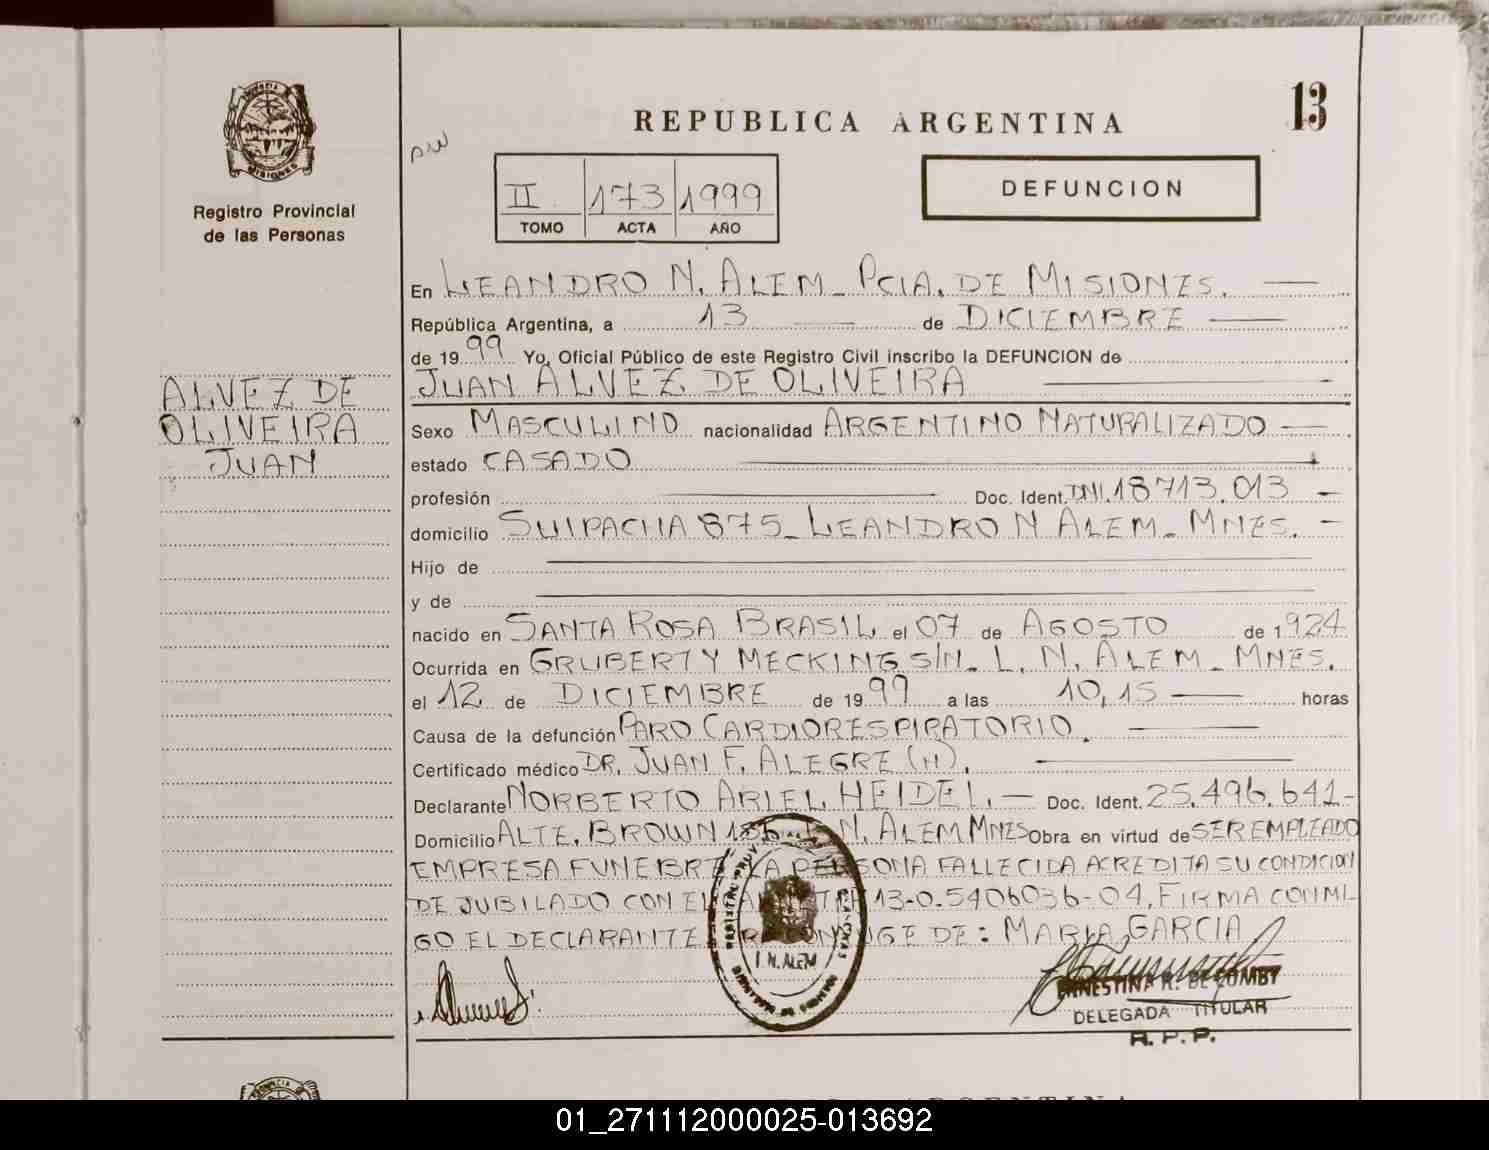 13
REPUBLICA ARGENTINA
PROVINCIA DE MISIONES
Registro Provincial
de las Personas
DEFUNCION
II 173 1999
TOMO ACTA AÑO
En LEANDRO N. ALEM - PCIA. DE MISIONES.
República Argentina, a 13 de DICIEMBRE
de 1999 Yo, Oficial Público de este Registro Civil inscribo la DEFUNCION de
JUAN ALVEZ DE OLIVEIRA
ALVEZ DE
OLIVEIRA
JUAN
Sexo MASCULINO nacionalidad ARGENTINO NATURALIZADO
estado CASADO
profesión Doc. Ident. DNI. 18713.013
domicilio SUIPACHA 875 - LEANDRO N ALEM - MNES.
Hijo de
y de
nacido en SANTA ROSA BRASIL el 07 de AGOSTO de 1924
Ocurrida en GRUBERT Y MECKING S/N - L. N. ALEM - MNES.
el 12 de DICIEMBRE de 1999 a las 10,15 horas
Causa de la defunción PARO CARDIORESPIRATORIO.
Certificado médico DR. JUAN F. ALEGRE (H).
Declarante NORBERTO ARIEL HEIDEL. Doc. Ident. 25.496.641-
Domicilio ALTE. BROWN N. ALEM MNES Obra en virtud de SER EMPLEADO
EMPRESA FUNEBRE LA PERSONA FALLECIDA ACREDITA SU CONDICION
DE JUBILADO CON EL 13-0.5406036-04. FIRMA CONMI-
GO EL DECLARANTE DE: MARIA GARCIA
L. N. ALEM
ERNESTINA R. DE COMBY
DELEGADA TITULAR
R. P. P.
REPUBLICA ARGENTINA
01_271112000025-013692